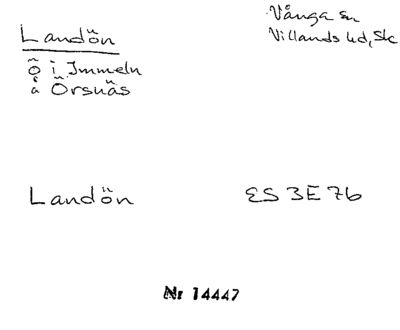 Landön
ö i Immeln
å Örsnäs
Vånga sn
Villands hd, Sk
Landön
ES 3E 76
Nr 14447